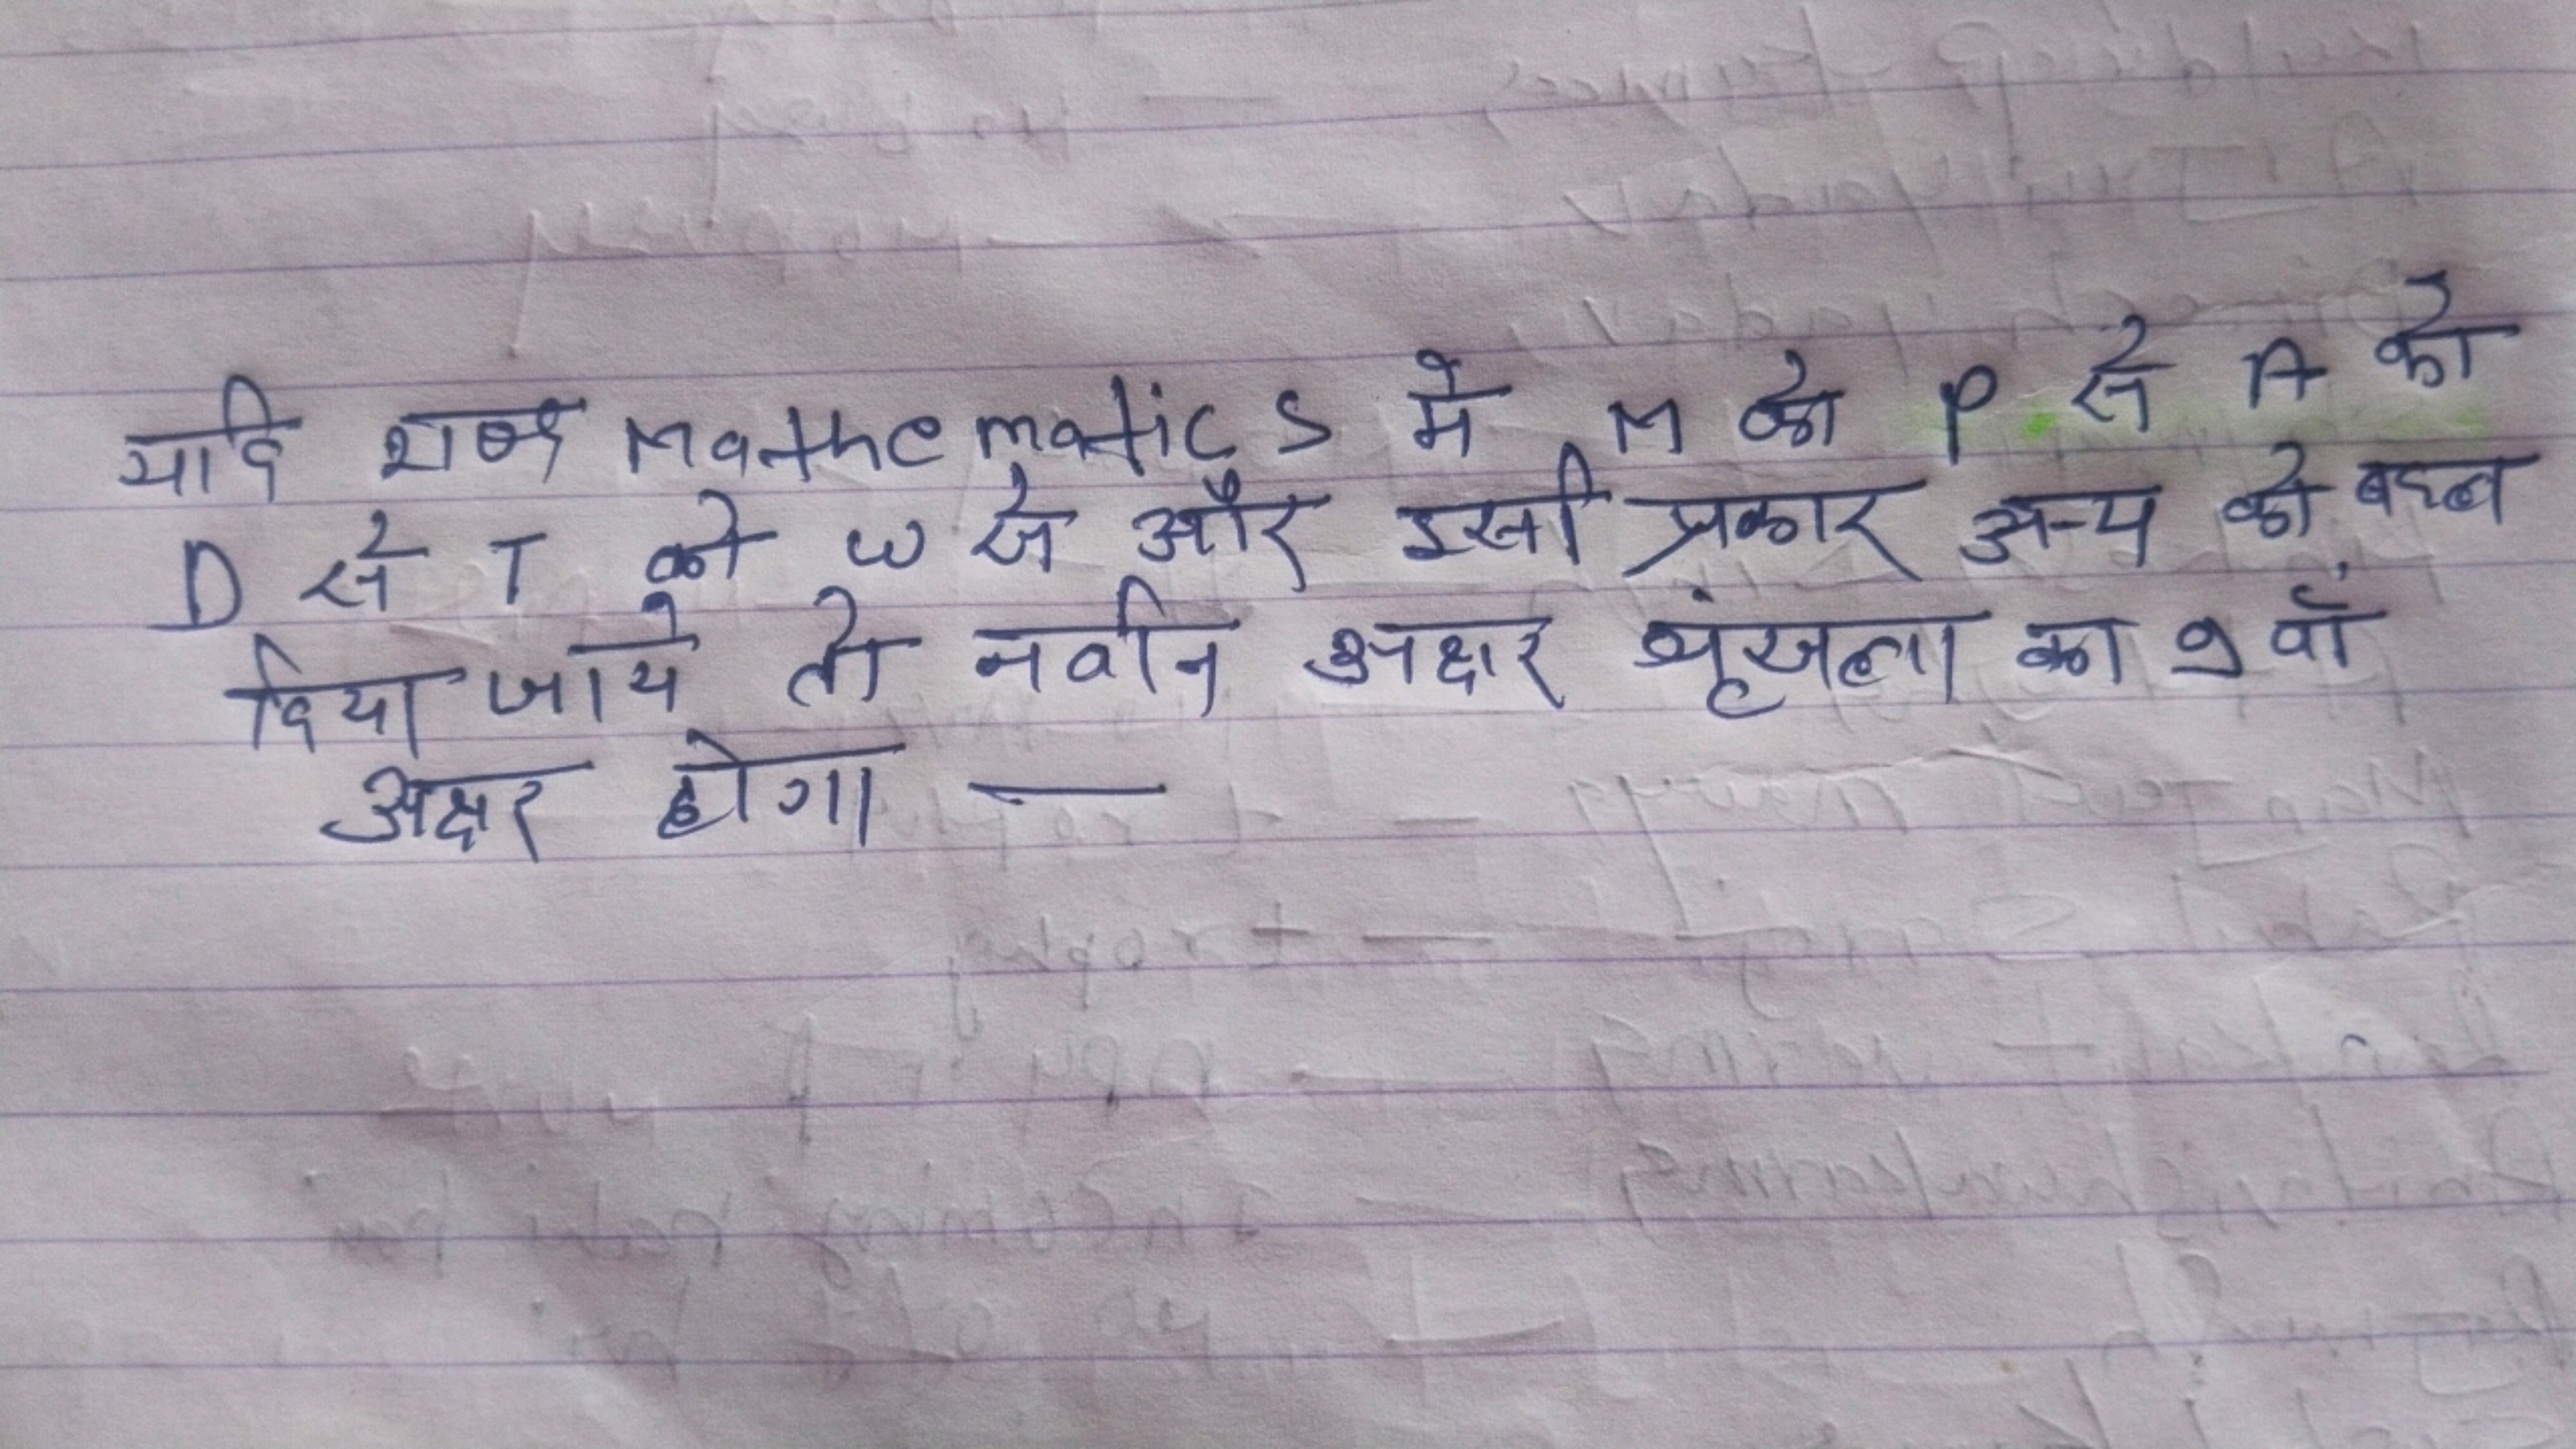 यदि शब्द Mathematics में M को P से A को
D से T को W से और इसी प्रकार अन्य को बदल
दिया जाये तो नवीन अक्षर श्रृंखला का 9 वाँ
अक्षर होगा —